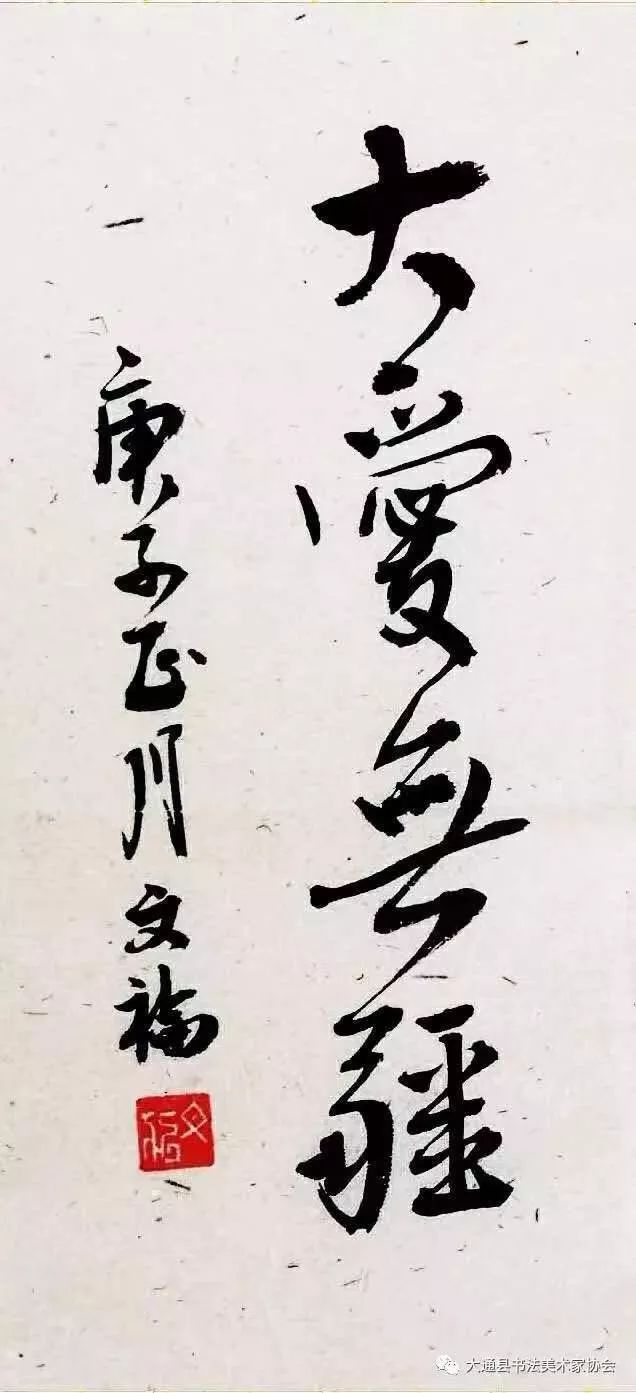 大愛無疆
庚子正月文福
大通县书法美术家协会